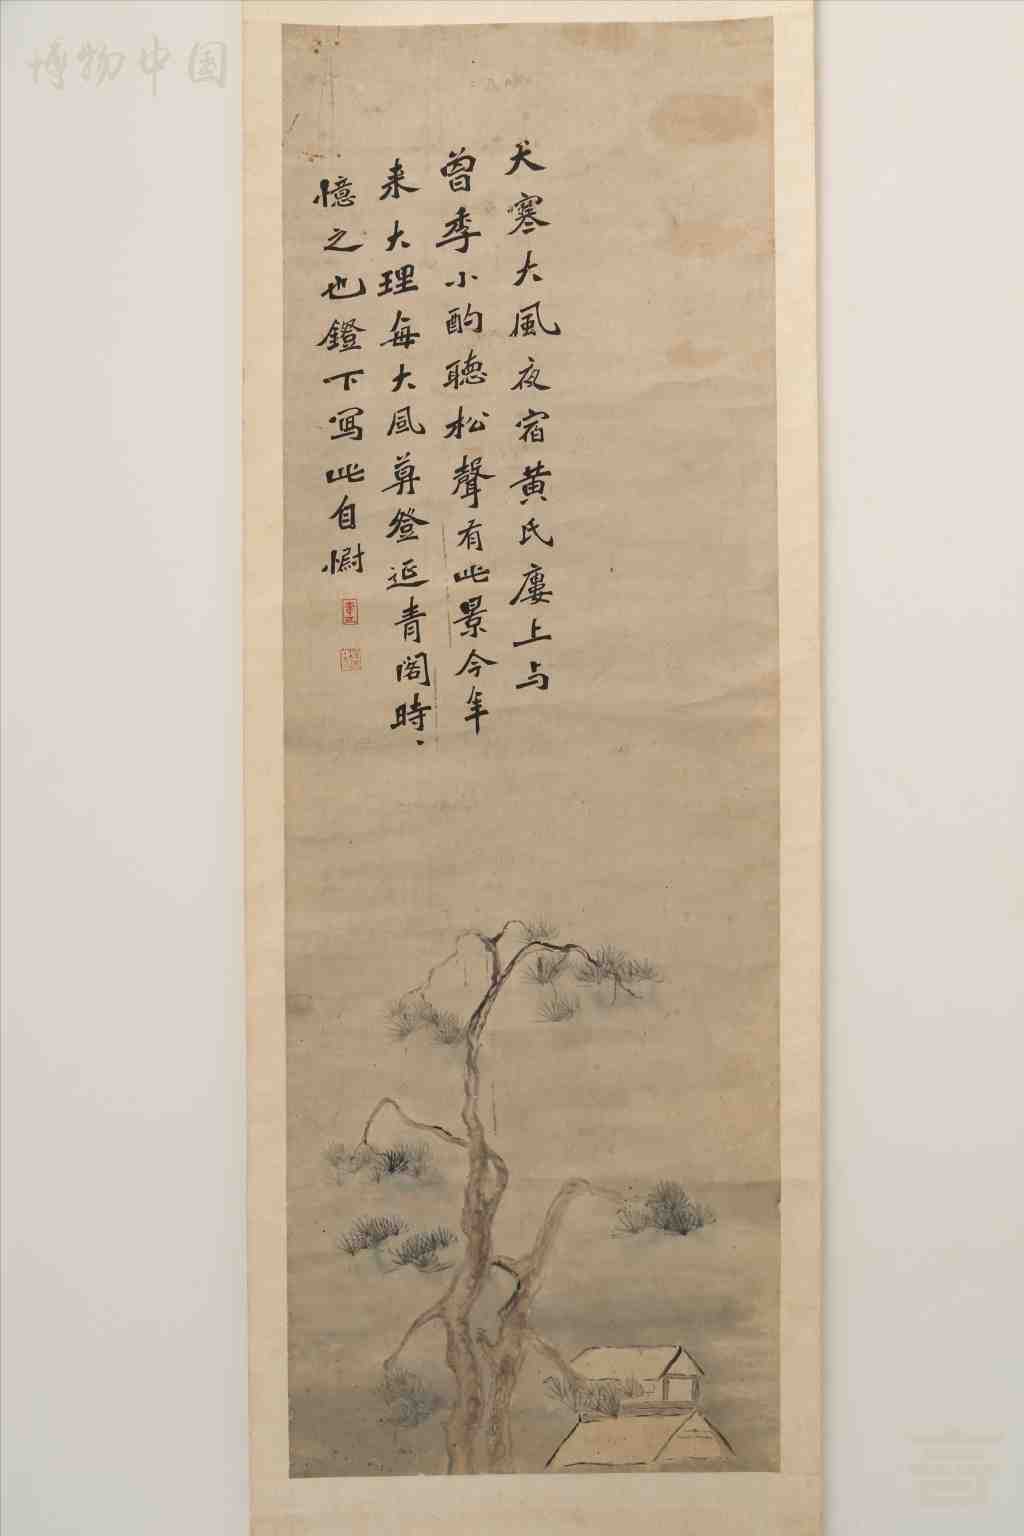 天寒大風夜宿黄氏廔上与
曾季小酌聴松聲有此景今年
来大理每大風算登延青閣時、
憶之也鐙下寫此自慰
博物中国